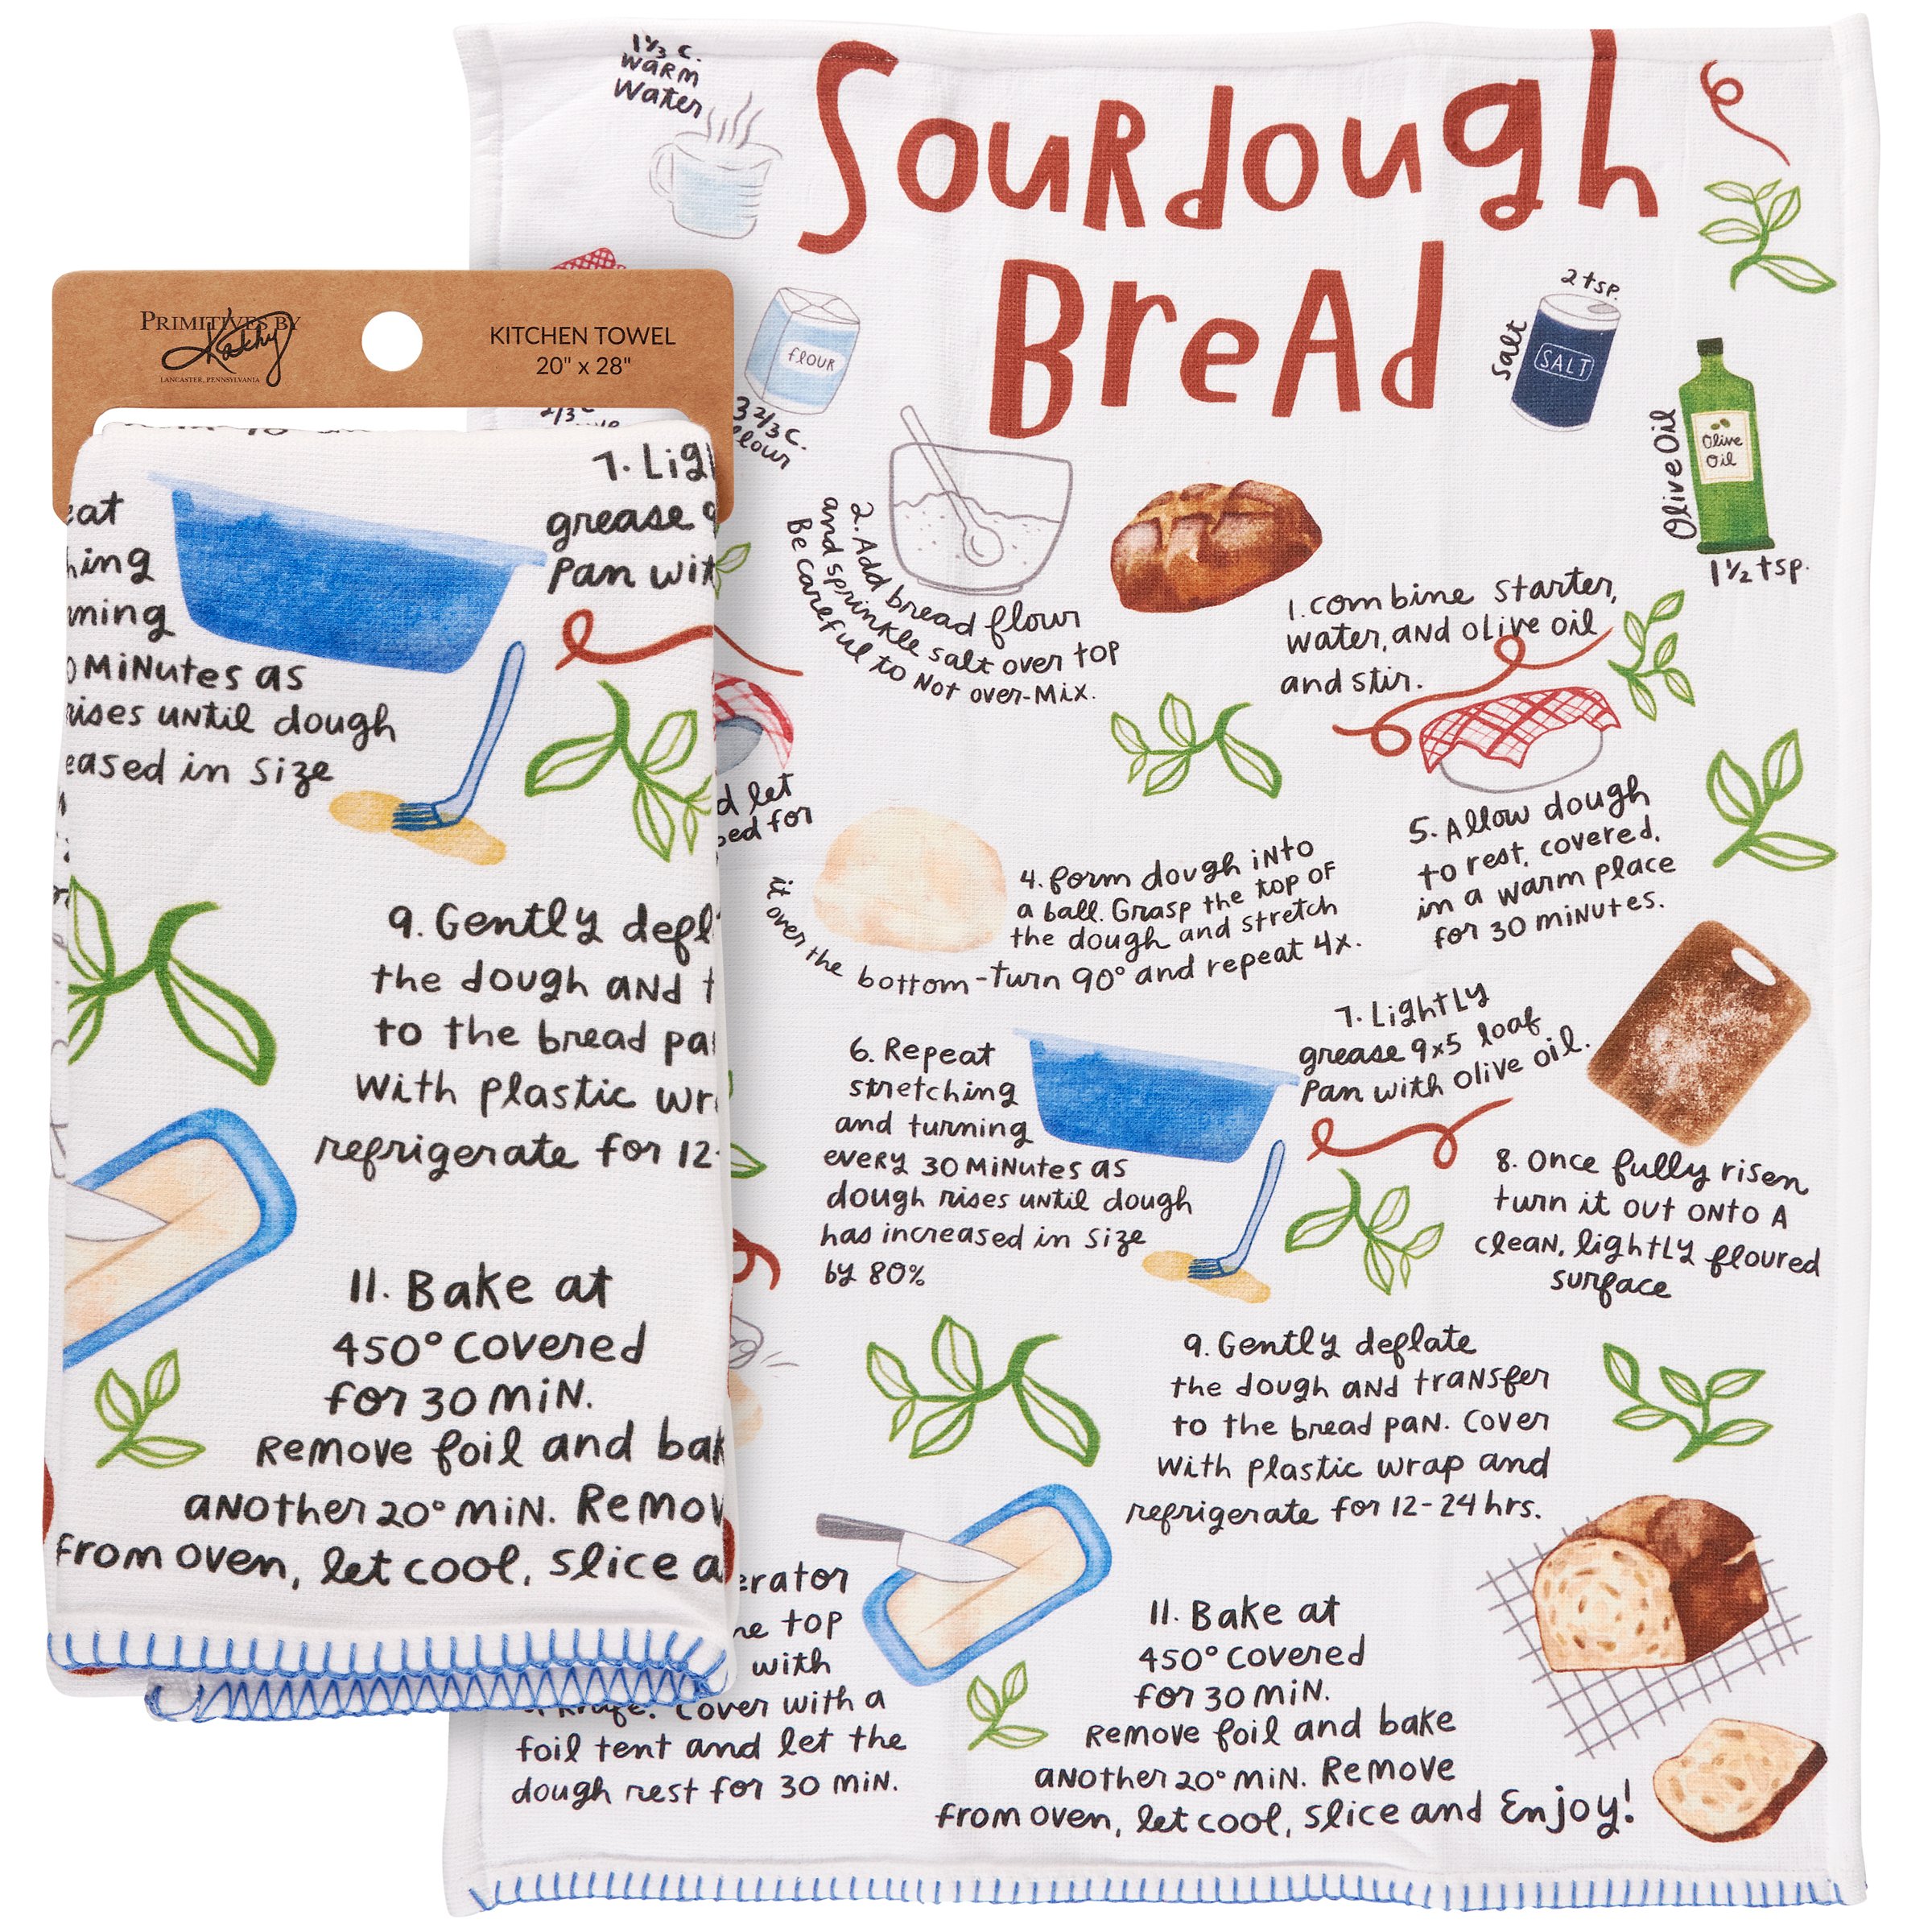 1⅓ c.
warm
Water
Sourdough
Bread
PRIMITIVES BY
Kathy
LANCASTER, PENNSYLVANIA
KITCHEN TOWEL
20" x 28"
2/3 c
3 2/3 c.
flour
FLOUR
2 tsp.
Salt
SALT
Olive Oil
Olive
Oil
1½ tsp.
1. combine starter,
water, and olive oil
and stir.
2. Add bread flour
and sprinkle salt over top
Be careful to Not over-Mix.
d let
ped for
4. form dough into
a ball. Grasp the top of
the dough and stretch
it over the bottom - turn 90° and repeat 4x.
5. Allow dough
to rest, covered,
in a warm place
for 30 minutes.
6. Repeat
stretching
and turning
every 30 Minutes as
dough rises until dough
has increased in size
by 80%
7. Lightly
grease 9x5 loaf
Pan with olive oil.
8. Once fully risen
turn it out onto a
clean, lightly floured
surface
9. Gently deflate
the dough and transfer
to the bread pan. Cover
with plastic wrap and
refrigerate for 12-24 hrs.
erator
he top
with
a knife. Cover with a
foil tent and let the
dough rest for 30 min.
11. Bake at
450° covered
for 30 min.
Remove foil and bake
another 20° min. Remove
from oven, let cool, slice and Enjoy!
7. Lig
grease 9
Pan wit
eat
hing
rning
0 Minutes as
rises until dough
eased in size
9. Gently defl
the dough and t
to the bread pa
with plastic wr
refrigerate for 12-
11. Bake at
450° covered
for 30 min.
Remove foil and bak
another 20° min. Remov
from oven, let cool, slice a